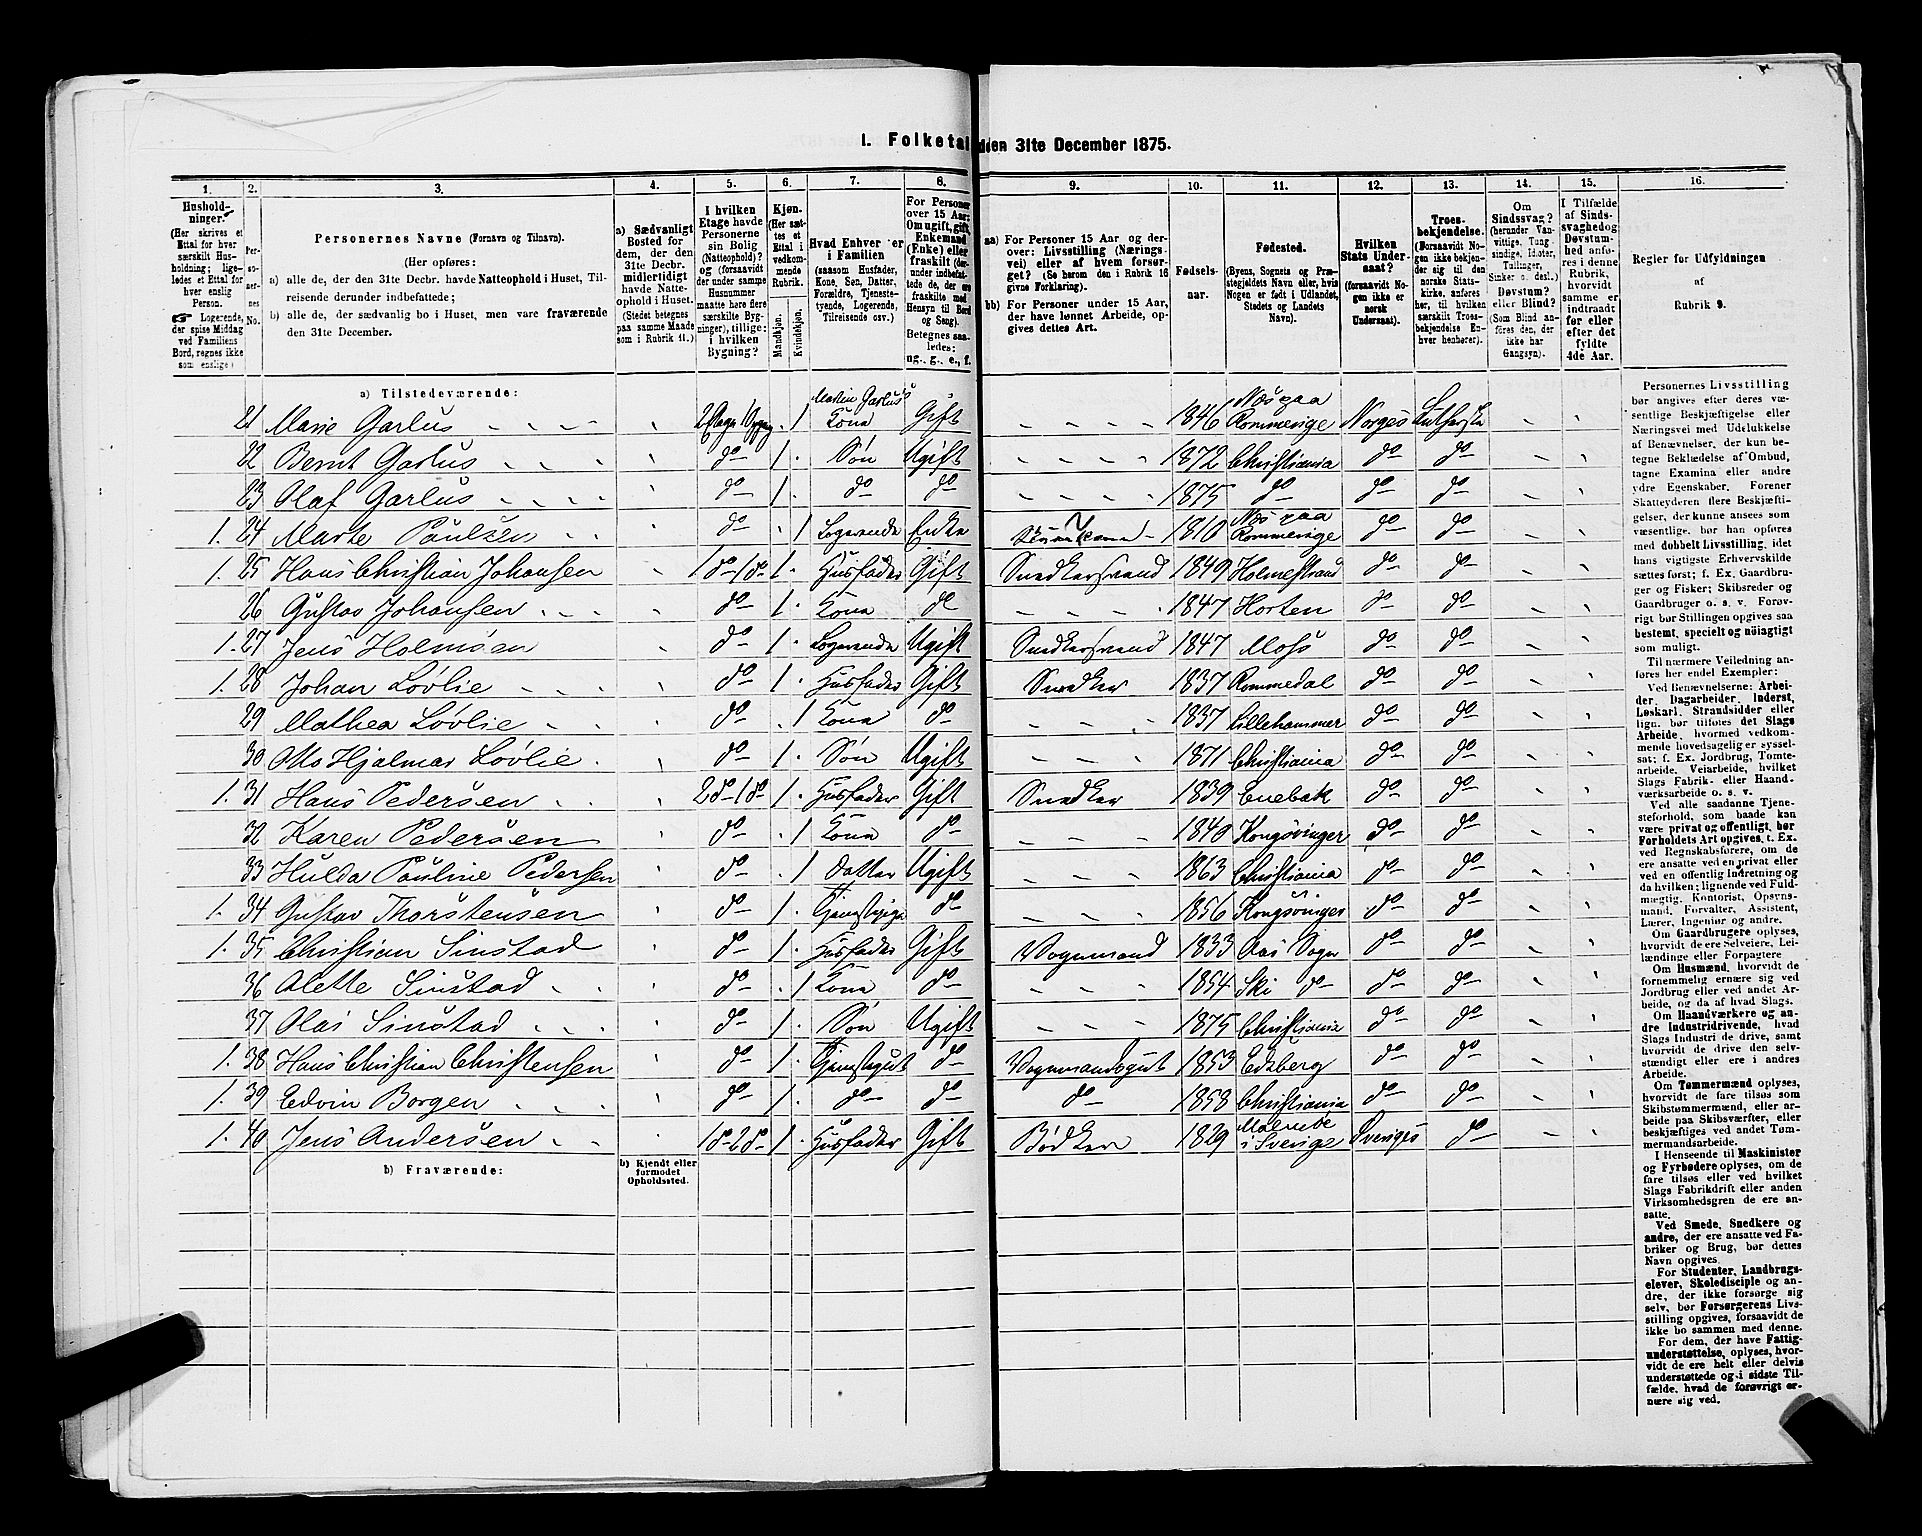 1. Folketal den 31te December 1875.
1. 2. 3. 4. 5. 6. 7. 8. 9. 10. 11. 12. 13. 14. 15. 16.
Hushold-
ninger.
(Her skrives et
Ettal for hver
særskilt Hus-
holdning; lige-
ledes et Ettal
for hver
enslig
Person.
☞ Logerende,
der spise Middag
ved Familiens
Bord, regnes ikke
som enslige)
Per-
so-
ner-
nes
No.
Personernes Navne (Fornavn og Tilnavn).
(Her opføres:
a) alle de, der den 31te Decbr. havde Natteophold i Huset, Til-
reisende derunder indbefattede;
b) alle de, der sædvanlig bo i Huset, men vare fraværende
den 31te December.
a) Sædvanligt
Bosted for
dem, der den
31te Decbr.
midlertidigt
havde Natte-
ophold i Huset.
(Stedet betegnes
paa samme Maade
som i Rubrik 11.)
I hvilken
Etage havde
Personerne
sin Bolig
(Natteophold)?
og (forsaavidt
der under samme
Husnummer
maatte høre flere
særskilte Byg-
ninger), tillige:
i hvilken
Bygning?
Kjøn.
(Her sæt-
tes et
Ettal i
vedkom-
mende
Rubrik.
Mandkjøn.
Kvindekjøn.
Hvad Enhver er
i Familien
(saasom Husfader,
Kone, Søn, Datter,
Forældre, Tjeneste-
tyende, Logerende,
Tilreisende osv.)
For Personer
over 15 Aar:
Om ugift, gift,
Enkemand
(Enke) eller
fraskilt (der-
under indbefat-
tede de, der ere
fraskilte med
Hensyn til Bord
og Seng).
Betegnes saa-
ledes:
ug., g., e., f.
aa) For Personer 15 Aar og der-
over: Livsstilling (Nærings-
vei) eller af hvem forsør-
get? (Se herom den i Rubrik 16
givne Forklaring).
bb) For Personer under 15 Aar,
der have lønnet Arbeide, op-
gives dettes Art.
Fødsels-
aar.
Fødested.
(Byens, Sognets og Præ-
stegjeldets Navn eller, hvis
Nogen er født i Udlandet,
Stedets og Landets
Navn).
Hvilken
Stats Under-
saat?
(forsaavidt No-
gen ikke er
norsk
Undersaat).
Troes-
bekjendelse.
(Forsaavidt No-
gen ikke bekjen-
der sig til den
norske Stats-
kirke, anføres
her, til hvilken
særskilt Troes-
bekjendelse En-
hver henhører).
Om
Sindssvag?
(herunder Van-
vittige, Tung-
sindige, Idioter,
Tullinger,
Sinker o. desl.)
Døvstum?
eller Blind?
(Som Blind an-
føres den, der
ikke har
Gangsyn).
I Tilfælde
af Sinds-
svaghed og
Døvstum-
hed anfø-
res i denne
Rubrik,
hvorvidt
samme er
indtraadt
før eller
efter det
fyldte
4de Aar.
Regler for Udfyldningen
af
Rubrik 9.
a) Tilstedeværende:
21 Marie Garlus 2 Etage 1 Bygng 1 Martin Garlus's Kona Gift 1846 Næs paa Rommerige Norges Lutherske
22 Bernt Garlus do 1 Søn Ugift 1872 Christiania do do
23 Olaf Garlus do 1 do do 1875 do do do
1. 24 Marte Paulsen do 1 Logerende Enke 1810 Næs paa Rommerige do do
1. 25 Hans Christian Johansen 1 do 1 do 1 Husfader Gift Snedkersvend 1849 Holmestrand do do
26 Gustav Johansen do 1 Kona do 1847 Horten do do
1. 27 Jens Holmsen do 1 Logerende Ugift Snedkersvend 1847 Moss do do
1. 28 Johan Løvlie do 1 Husfader Gift Snedker 1837 Rommedal do do
29 Mathea Løvlie do 1 Kona do 1837 Lillehammer do do
30 Otto Hjalmar Løvlie do 1 Søn Ugift 1871 Christiania do do
1. 31 Hans Pedersen 2 do 1 do 1 Husfader Gift Snedker 1839 Enebak do do
32 Karen Pedersen do 1 Kona do 1840 Kongsvinger do do
33 Hulda Pauline Pedersen do 1 Datter Ugift 1863 Christiania do do
1. 34 Gustav Thorstensen do 1 Tjenstpige do 1856 Kongsvinger do do
1. 35 Christian Sinstad do 1 Husfader Gift Vognmand 1833 Aas Sogn do do
36 Alette Sinstad do 1 Kona 1854 Ski do do do
37 Olai Sinstad do 1 Søn Ugift 1875 Christiania do do
1. 38 Hans Christian Christensen do 1 Tjenstegut do Vognmandsgut 1853 Edsberg do do
1. 39 Edvin Borgen do 1 do do do 1858 Christiania do do
1. 40 Jens Andersen 1 do 2 do 1 Husfader Gift Bødker 1829 Malmøe i Sverige Sveriges do
b) Fraværende:
b) Kjendt eller
formodet
Opholdssted.
Personernes Livsstilling
bør angives efter deres væ-
sentlige Beskjæftigelse eller
Næringsvei med Udelukkelse
af Benævnelser, der kun be-
tegne Beklædelse af Ombud,
tagne Examina eller andre
ydre Egenskaber. Forener
Skatteyderen flere Beskjæfti-
gelser, der kunne ansees som
væsentlige, bør han opføres
med dobbelt Livsstilling, idet
hans vigtigste Erhvervskilde
sættes først; f. Ex. Gaardbru-
ger og Fisker; Skibsreder og
Gaardbruger o. s. v. Forøv-
rigt bør Stillingen opgives saa
bestemt, specielt og nøiagtigt
som muligt.
Til nærmere Veiledning an-
føres her endel Exempler:
Ved Benævnelserne: Arbei-
der, Dagarbeider, Inderst,
Løskarl, Strandsidder eller
lign. bør tilføies det Slags
Arbeide, hvormed vedkom-
mende hovedsagelig er syssel-
sat; f. Ex. Jordbrug, Tomte-
arbeide, Veiarbeide, hvilket
Slags Fabrik- eller Haand-
værksarbeide o. s. v.
Ved alle saadanne Tjene-
steforhold, som baade kan
være privat og offentlig, bør
Forholdets Art opgives, t. Ex.
ved Regnskabsførere, om de
ere ansatte ved en privat eller
ved en offentlig Indretning og
da hvilken; lignende ved Fuld-
mægtig, Kontorist, Opsyns-
mand, Forvalter, Assistent,
Lærer, Ingeniør og andre.
Om Gaardbrugere oplyses,
hvorvidt de ere Selveiere, Lei-
lændinge eller Forpagtere
Om Husmænd, hvorvidt de
fornemmelig ernære sig ved
Jordbrug eller ved andet Ar-
beide, og da af hvad Slags.
Om Haandværkere og an-
dre Industridrivende, hvad
Slags Industri de drive, samt
hvorvidt de drive den selv-
stændigt eller ere i andres
Arbeide.
Om Tømmermænd oplyses,
hvorvidt de fare tilsøs som
Skibstømmermænd, eller ar-
beide paa Skibsværfter, eller
beskjæftiges ved andet Tøm-
mermandsarbeide.
I Henseende til Maskinister
og Fyrbødere oplyses, om de
fare tilsøs eller ved hvilket
Slags Fabrikdrift eller anden
Virksomhedsgren de ere an-
satte.
Ved Smede, Snedkere og
andre, der ere ansatte ved Fa-
briker og Brug, bør dettes
Navn opgives.
For Studenter, Landbrugs-
elever, Skoledisciple og an-
dre, der ikke forsørge sig
selv, bør Forsørgerens Livs-
stilling opgives, forsaavidt de
ikke bo sammen med denne.
For dem, der have Fattig-
understøttelse, oplyses, hvor-
vidt de ere helt eller delvis
understøttede og i sidste Til-
fælde, hvad de forøvrigt er-
nære sig ved.